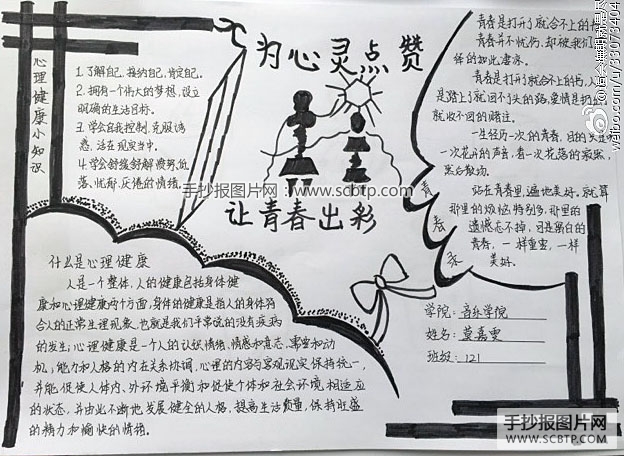 为心灵点赞
让青春出彩
心理健康小知识
1.了解自己,接纳自己,肯定自己。
2.拥有一个伟大的梦想,设立
明确的生活目标。
3.学会自我控制,克服诱
惑,活在现实当中。
4.学会舒缓纾解疲劳,低
落、忧郁、厌倦的情绪。
什么是心理健康
人是一个整体,人的健康包括身体健
康和心理健康两个方面,身体的健康是指人的身体符
合人的正常生理现象,也就是我们平常说的没有疾病
的发生;心理健康是一个人的认识情绪,情感和意志,需要和动
机;能力和人格的内在关系协调,心理的内容与客观现实保持统一,
并能促使人体内、外环境平衡和促使个体和社会环境相适应
的状态,并由此不断地发展健全的人格,提高生活质量,保持旺盛
的精力和愉快的情绪。
青春是打开了就合不上的
青春并不忧伤,却被我们
体的如此凄凉。
青春是打开了就合不上的书,人
是踏上了就回不了头的路,爱情是扔
就收不回的赌注。
一生经历一次的青春,目的只是
一次花开的声音,看一次花落的寂然,
然后散场。
站在青春里,遍地美好。就算
那里的烦恼特别多,那里的
遗憾忘不掉,可是黑白的
青春,一样重要,一样
美好。
青
春
学院:音乐学院
姓名:莫嘉雯
班级:121
手抄报图片网-www.scbtp.com
手抄报图片网
WWW.SCBTP.COM
weibo.com/u/33073404